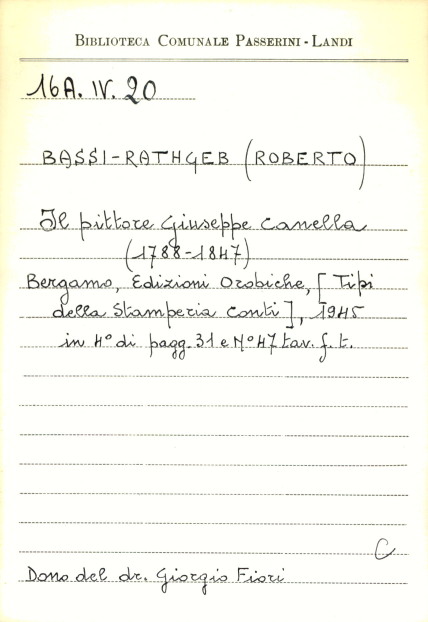 BIBLIOTECA COMUNALE PASSERINI - LANDI
16A. IV. 20
BASSI-RATHGEB (ROBERTO)
Il pittore Giuseppe Canella
(1788-1847)
Bergamo, Edizioni Orobiche, [Tipi
della Stamperia Conti], 1945
in 4° di pagg. 31 e N° 47 tav. f. t.
C
Dono del dr. Giorgio Fiori